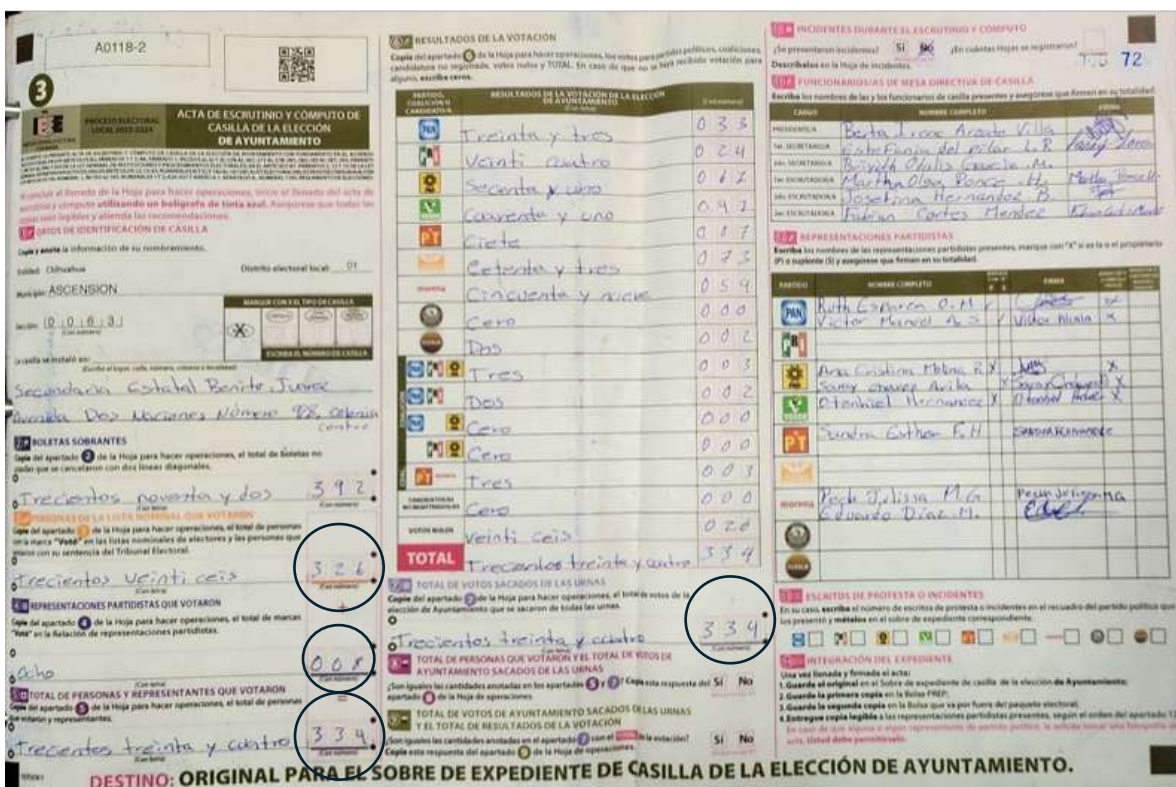 A0118-2
3
IEE
PROCESO ELECTORAL
LOCAL 2023-2024
ACTA DE ESCRUTINIO Y CÓMPUTO DE
CASILLA DE LA ELECCIÓN
DE AYUNTAMIENTO
DATOS DE IDENTIFICACIÓN DE CASILLA
Copie y anote la información de su nombramiento.
Entidad: Chihuahua Distrito electoral local: 01
Municipio: ASCENSION
MARQUE CON X EL TIPO DE CASILLA
Sección: 0 0 6 3
(Con número)
X
ESCRIBA EL NÚMERO DE CASILLA
La casilla se instaló en:
(Escriba el lugar, calle, número, colonia o localidad)
Secundaria Estatal Benito Juarez
Avenida Dos Naciones Número colonia
centro
BOLETAS SOBRANTES
Copie del apartado 2 de la Hoja para hacer operaciones, el total de boletas no
usadas que se cancelaron con dos líneas diagonales.
Trecientos noventa y dos 392
(Con letra) (Con número)
PERSONAS DE LA LISTA NOMINAL QUE VOTARON
Trecientos Veinti ceis 326
(Con letra) (Con número)
REPRESENTACIONES PARTIDISTAS QUE VOTARON
Copie del apartado 4 de la Hoja para hacer operaciones, el total de marcas
"Votó" en la Relación de representaciones partidistas.
Ocho 008
(Con letra) (Con número)
TOTAL DE PERSONAS Y REPRESENTANTES QUE VOTARON
Copie del apartado 5 de la Hoja para hacer operaciones, el total de personas
que votaron y representantes.
Trecientos treinta y cuatro 334
(Con letra) (Con número)
RESULTADOS DE LA VOTACIÓN
Copie del apartado 6 de la Hoja para hacer operaciones, los votos para partidos políticos, coaliciones,
candidatura no registrada, votos nulos y TOTAL. En caso de que no se haya recibido votación para
alguno, escriba ceros.
PARTIDO, COALICIÓN O CANDIDATURA
RESULTADOS DE LA VOTACIÓN DE LA ELECCIÓN
DE AYUNTAMIENTO
(Con letra) (Con número)
PAN Treinta y tres 033
PRI Veinti cuatro 024
PRD Secenta y uno 061
VERDE Cuarenta y uno 041
PT Ciete 007
Cetenta y tres 073
morena Cincuenta y nueve 059
Cero 000
Dos 002
Tres 003
Dos 002
Cero 000
Cero 000
PT morena Tres 003
CANDIDATURAS NO REGISTRADAS Cero 000
VOTOS NULOS Veinti ceis 026
TOTAL Trecientos treinta y cuatro 334
TOTAL DE VOTOS SACADOS DE LAS URNAS
Copie del apartado 7 de la Hoja para hacer operaciones, el total de votos de la
elección de Ayuntamiento que se sacaron de todas las urnas.
Trecientos treinta y cuatro 334
(Con letra) (Con número)
TOTAL DE PERSONAS QUE VOTARON Y EL TOTAL DE VOTOS DE
AYUNTAMIENTO SACADOS DE LAS URNAS
¿Son iguales las cantidades anotadas en los apartados 5 y 7? Copie esta respuesta del
apartado 8 de la Hoja de operaciones. Sí No
TOTAL DE VOTOS DE AYUNTAMIENTO SACADOS DE LAS URNAS
Y EL TOTAL DE RESULTADOS DE LA VOTACIÓN
¿Son iguales las cantidades anotadas en el apartado 7 con el TOTAL de la votación?
Copie esta respuesta del apartado 9 de la Hoja de operaciones. Sí No
INCIDENTES DURANTE EL ESCRUTINIO Y CÓMPUTO
¿Se presentaron incidentes? Sí No ¿En cuántas Hojas se registraron?
Descríbalos en la Hoja de incidentes.
72
FUNCIONARIOS/AS DE MESA DIRECTIVA DE CASILLA
Escriba los nombres de las y los funcionarios de casilla presentes y asegúrese que firmen en su totalidad.
CARGO NOMBRE COMPLETO FIRMA
PRESIDENTE/A Berta Irene Villa
1er. SECRETARIO/A Estefania del pilar L.R
2do. SECRETARIO/A Garcia M.
1er. ESCRUTADOR/A Martha Olga Ponce
2do. ESCRUTADOR/A Josefina Hernandez B.
3er. ESCRUTADOR/A Fabian Cortes Mendez
REPRESENTACIONES PARTIDISTAS
Escriba los nombres de las representaciones partidistas presentes, marque con "X" si es la o el propietario
(P) o suplente (S) y asegúrese que firmen en su totalidad.
PARTIDO NOMBRE COMPLETO FIRMA
PAN Ruth Esparza O.M
Victor Manuel A.S
PRI
PRD Ana Cristina Molina R X
Samy chavez Avila
VERDE Otonhiel Hernandez X
PT Sandra Esther F.H
morena Julissa M.G
Eduardo Diaz M.
ESCRITOS DE PROTESTA O INCIDENTES
En su caso, escriba el número de escritos de protesta o incidentes en el recuadro del partido político que
los presentó y métalos en el sobre de expediente correspondiente.
INTEGRACIÓN DEL EXPEDIENTE
Una vez llenada y firmada el acta:
1. Guarde el original en el Sobre de expediente de casilla de la elección de Ayuntamiento;
2. Guarde la primera copia en la Bolsa PREP;
3. Guarde la segunda copia en la Bolsa que va por fuera del paquete electoral;
4. Entregue copia legible a las representaciones partidistas presentes, según el orden del apartado
DESTINO: ORIGINAL PARA EL SOBRE DE EXPEDIENTE DE CASILLA DE LA ELECCIÓN DE AYUNTAMIENTO.